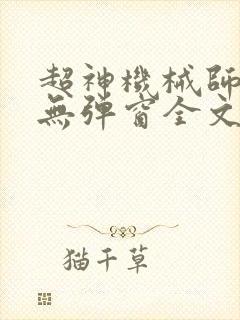 超神機械師
無彈窗全文
猫千草